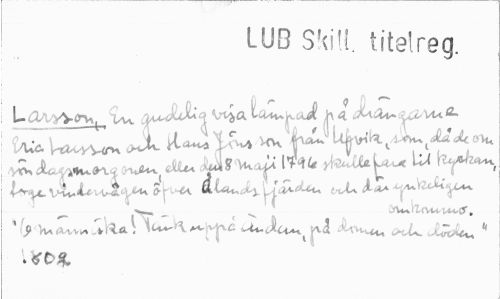 LUB Skill. titelreg.
Larsson, En gudelig visa lämpad på drängarne
Eric Larsson och Hans Jönsson från Ulfvik, som, då de om
söndagsmorgonen, eller den 8 maji 1796 skulle fara til kyrkan,
togo vädervägen öfver Ålandsfjärden och där ynkeligen
omkommo.
"O människa! Tänk uppå ändan, på domen och döden"
1802